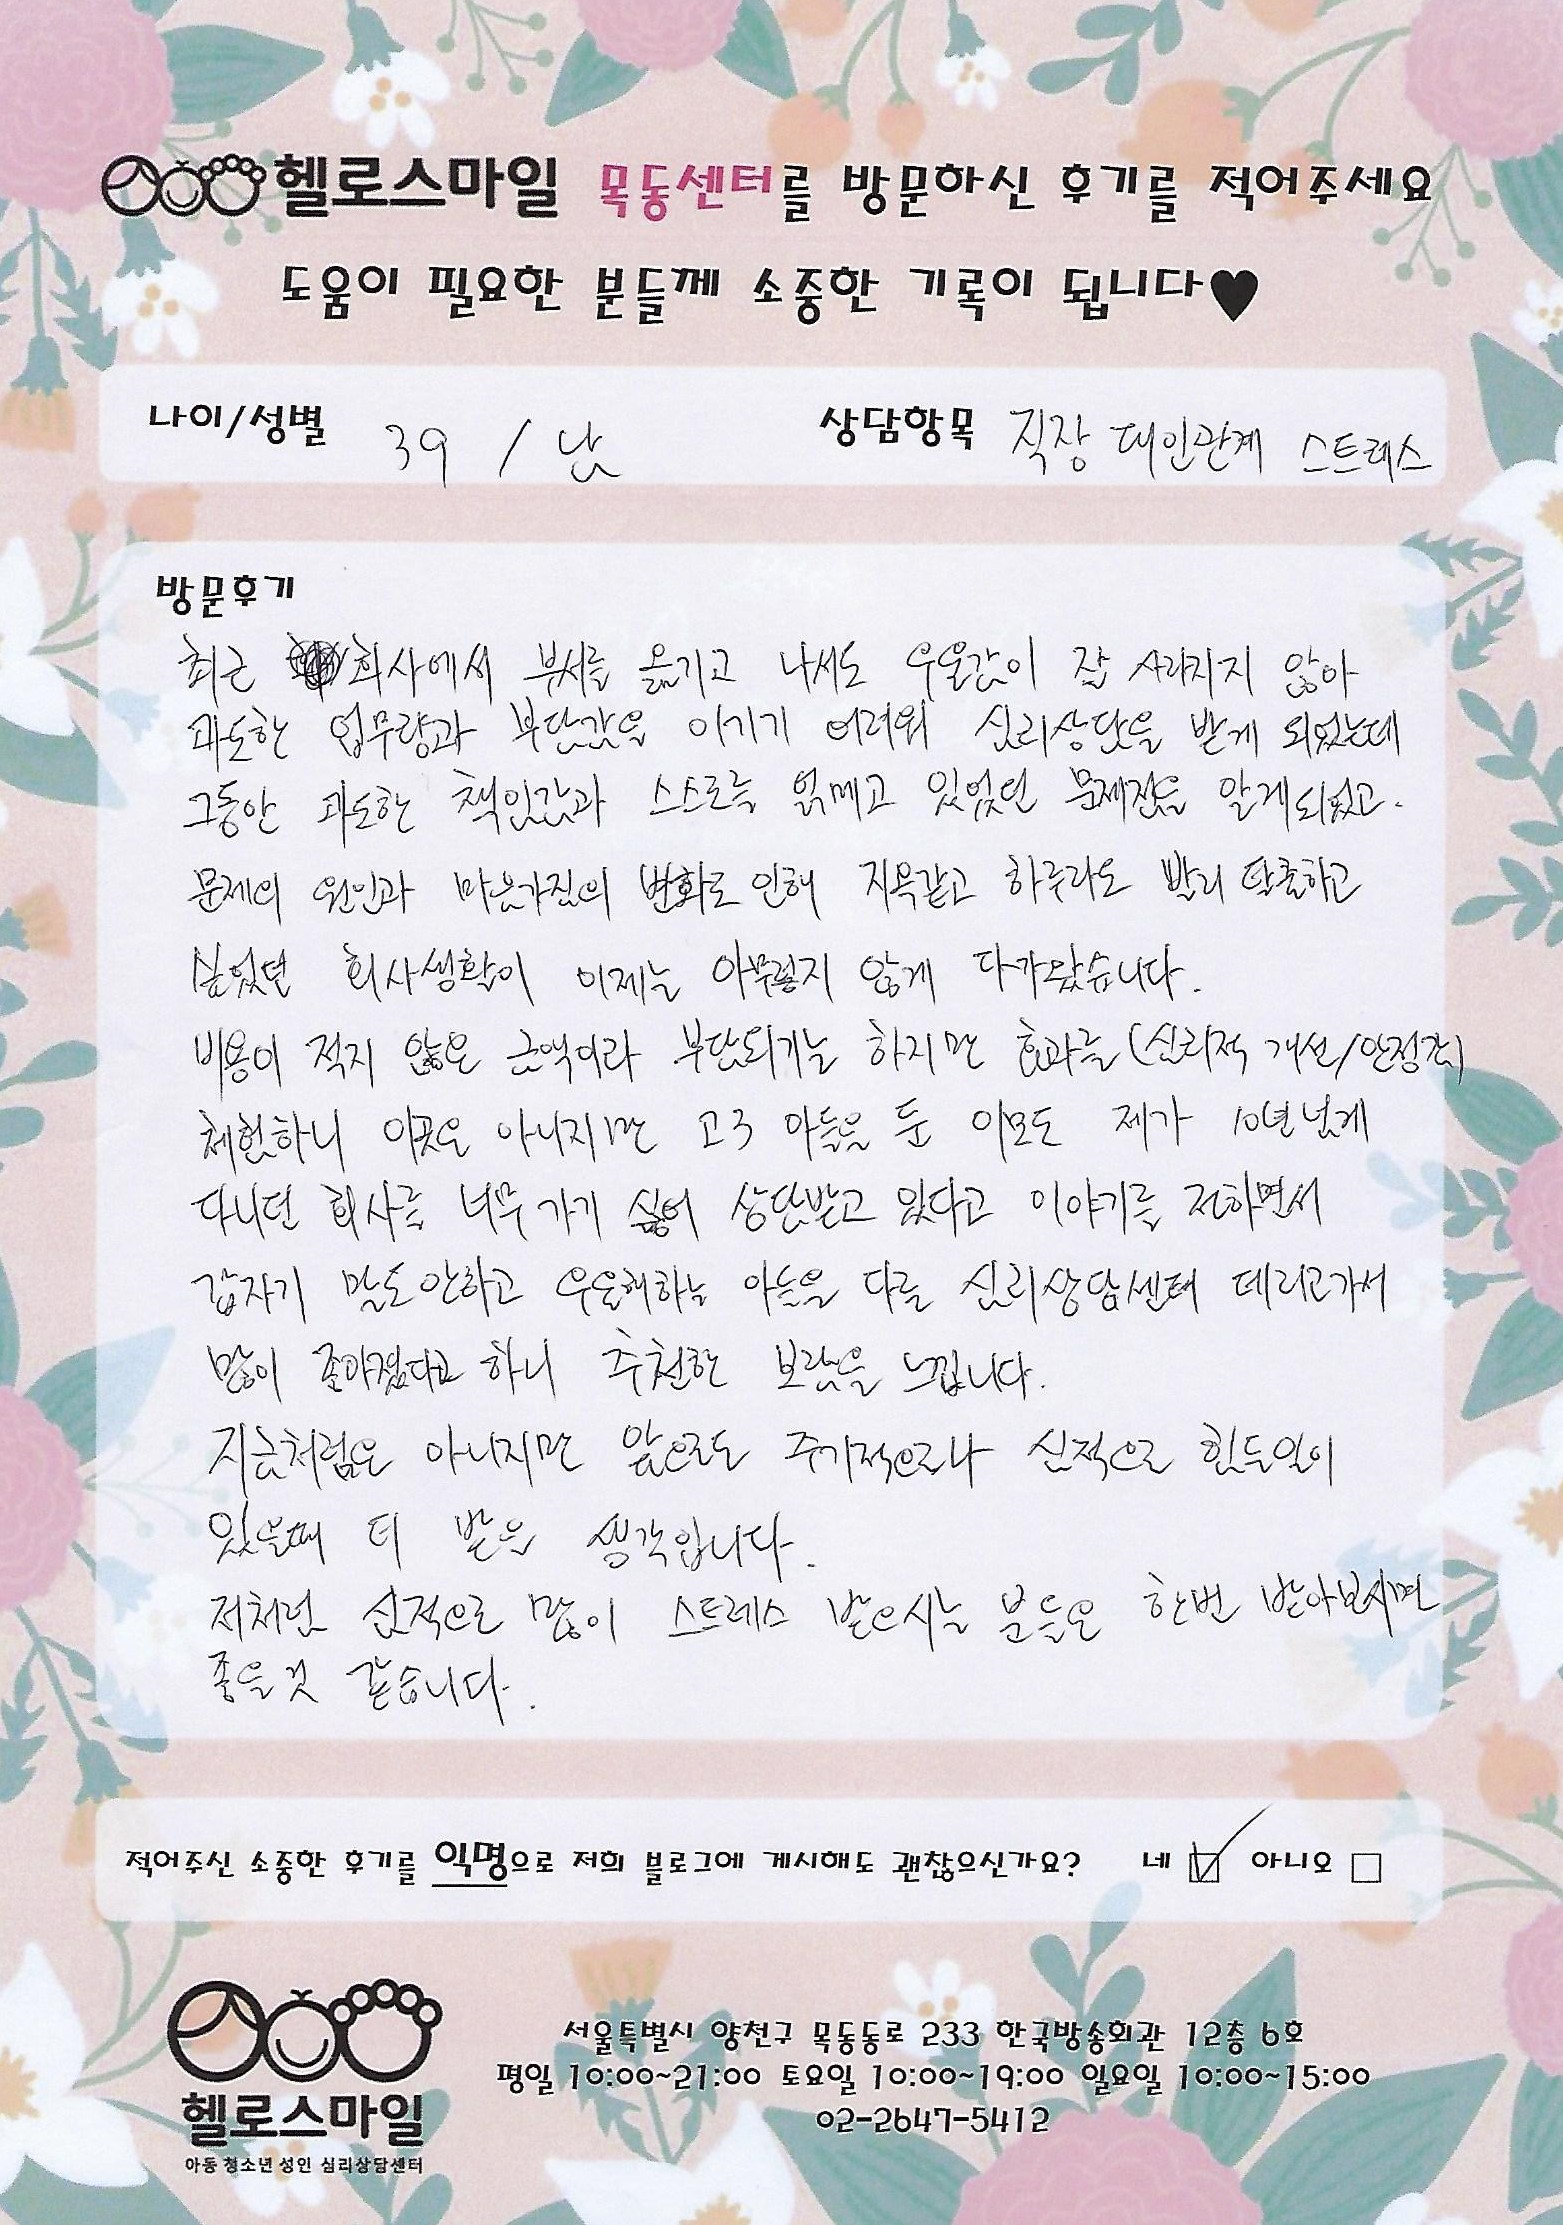 헬로스마일 목동센터를 방문하신 후기를 적어주세요
도움이 필요한 분들께 소중한 기록이 됩니다♥
나이/성별 39 / 남 상담항목 직장 대인관계 스트레스
방문후기
최근 회사에서 부서를 옮기고 나서도 우울감이 잘 사라지지 않아
과도한 업무량과 부담감을 이기기 어려워 심리상담을 받게 되었는데
그동안 과도한 책임감과 스스로를 얽메고 있었던 문제점을 알게되었고.
문제의 원인과 마음가짐의 변화로 인해 지옥같고 하루라도 빨리 탈출하고
싶었던 회사생활이 이제는 아무렇지 않게 다가왔습니다.
비용이 적지 않은 금액이라 부담되기는 하지만 효과를 (심리적 개선/안정감)
체험하니 이곳은 아니지만 고3 아들을 둔 이모도 제가 10년넘게
다니던 회사를 너무 가기 싫어 상담받고 있다고 이야기를 전하면서
갑자기 말도안하고 우울해하는 아들을 다른 심리상담센터 데리고가서
많이 좋아졌다고 하니 추천한 보람을 느낍니다.
지금처럼은 아니지만 앞으로도 주기적으로나 심적으로 힘든일이
있을때 더 받을 생각입니다.
저처럼 심적으로 많이 스트레스 받으시는 분들은 한번 받아보시면
좋을것 같습니다.
적어주신 소중한 후기를 익명으로 저희 블로그에 게시해도 괜찮으신가요? 네 ☑ 아니오 □
서울특별시 양천구 목동동로 233 한국방송회관 12층 6호
평일 10:00~21:00 토요일 10:00~19:00 일요일 10:00~15:00
02-2647-5412
헬로스마일
아동 청소년 성인 심리상담센터